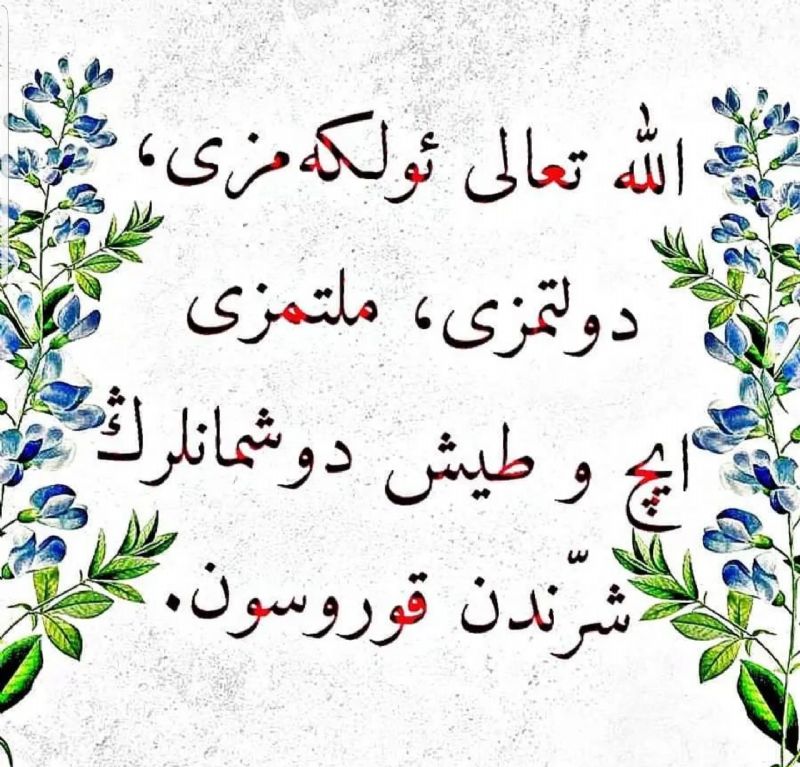 الله تعالی ئولکه‌مزی،
دولتمزی، ملتمزی
ایچ و طیش دوشمانلرڭ
شرّندن قوروسون.